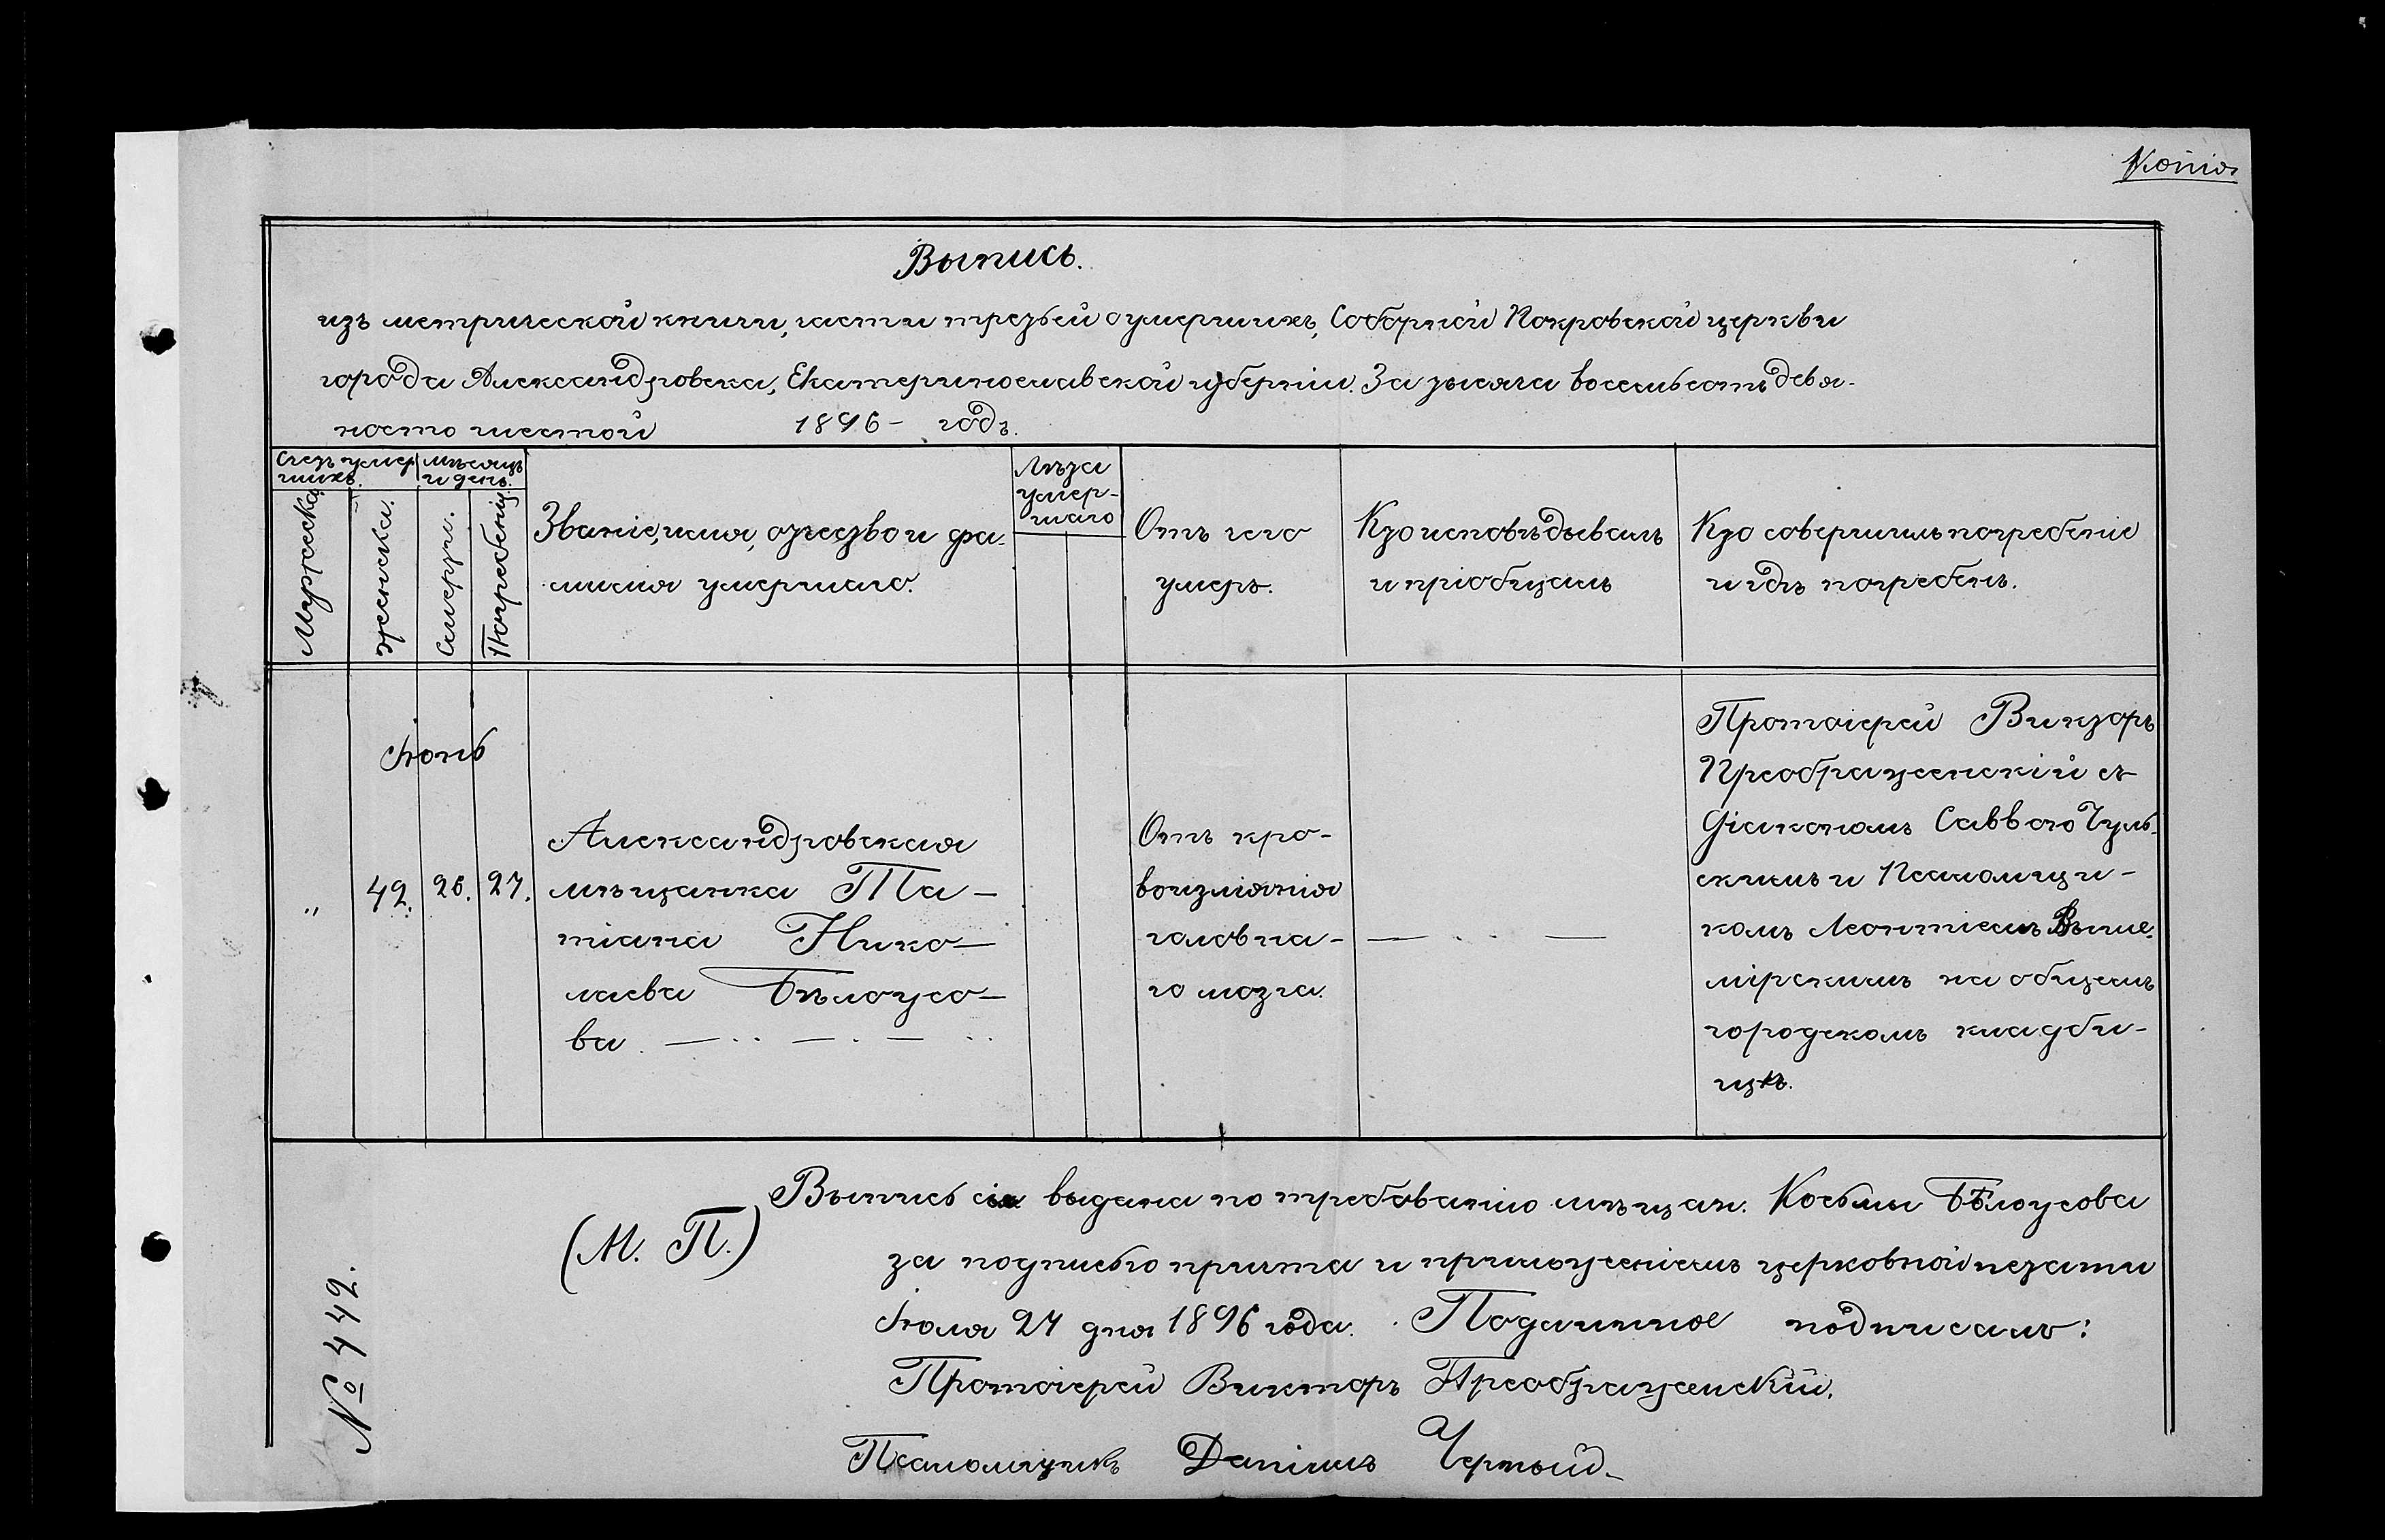 Копія
Выпись.
изъ метрической книги, части третьей о умершихъ, Соборной Покровской церкви
города Александровска, Екатеринославской губерніи. За тысяча восемьсотъ девя-
носто шестой 1896 - годъ.
Счетъ умер
шихъ.
мѣсяцъ
и день.
Мужеска
женска.
Смерти.
Погребенія
Званіе, имя, отчество и фа-
милія умершаго.
Лѣта
умер-
шаго
Отъ чего
умеръ.
Кто исповѣдывалъ
и пріобщалъ
Кто совершилъ погребеніе
и гдѣ погребенъ.
Іюнь
" 42. 26. 27.
Александровская
мѣщанка Та-
тіана Нико-
лаева Бѣлоусо-
ва.
Отъ кро-
воизліянія
головна-
го мозга.
Протоіерей Викторъ
Преображенскій съ
діакономъ Саввою Чуль-
скимъ и Псаломщи-
комъ Леонтіемъ Выше-
мірскимъ на общемъ
городскомъ кладби-
щѣ.
Выпись сія выдана по требованію мѣщан. Косьмы Бѣлоусова
(М. П.)
за подписью причта и приложеніемъ церковной печати
Іюля 27 дня 1896 года. Подлинное подписалъ:
Протоіерей Викторъ Преображенскій.
Псаломщикъ Даніилъ Черный
№ 442.